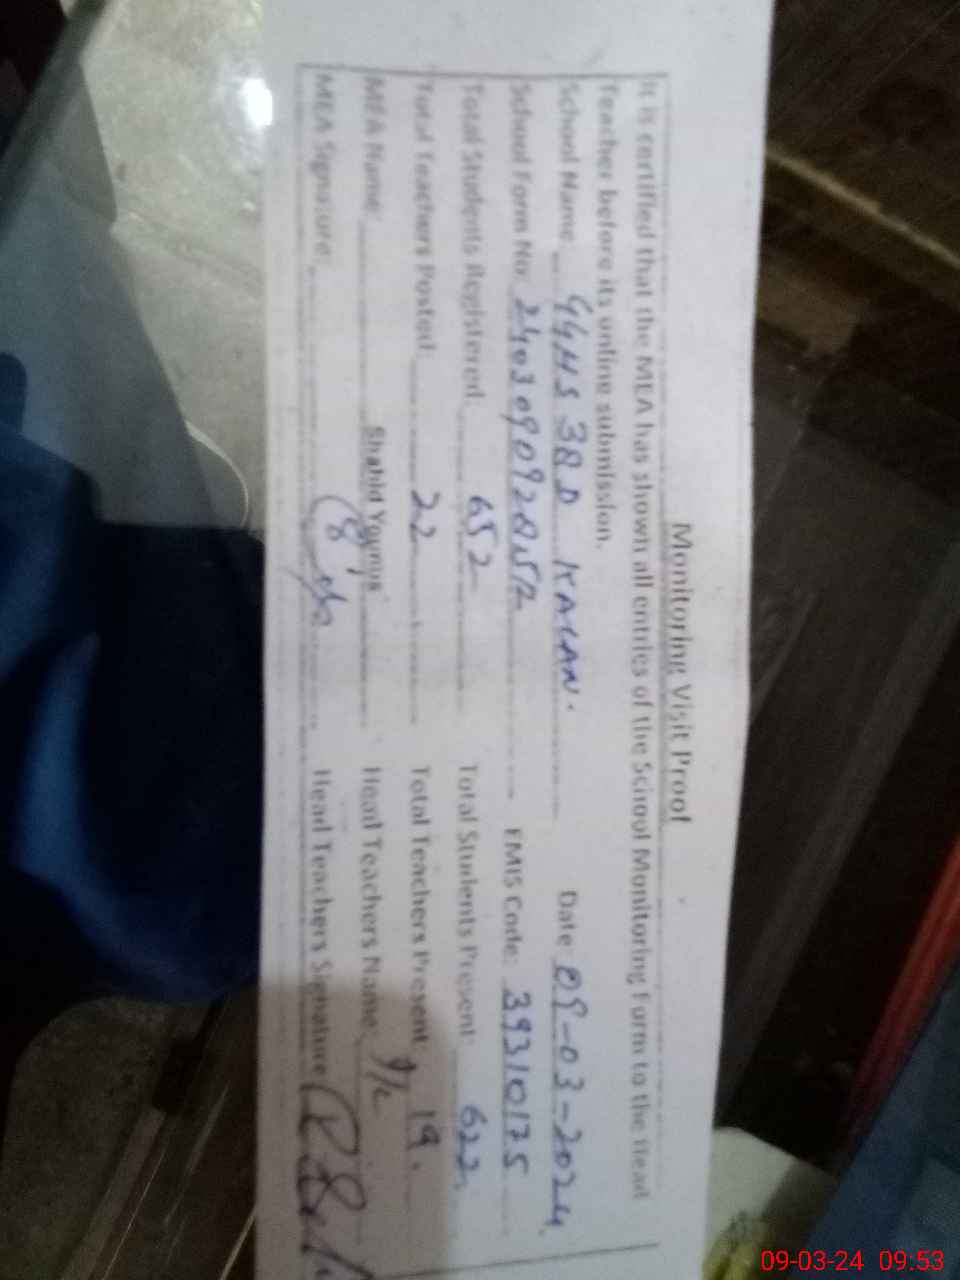 Monitoring Visit Proof
It is certified that the MEA has shown all entries of the School Monitoring Form to the Head
Teacher before its online submission.
School Name GGHS 38 D KALAN. Date 09-03-2024.
School Form No: EMIS Code: 39310175
Total Students Registered: 652 Total Students Present: 622
Total Teachers Posted: 22 Total Teachers Present: 19.
MEA Name: Shahid Younus Head Teachers Name I/C
MEA Signature: Head Teachers Signature
09-03-24 09:53